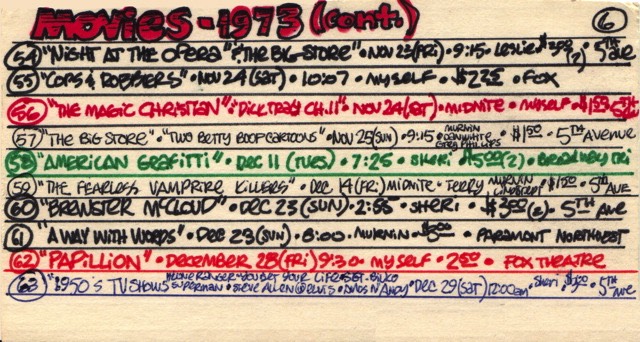 MOVIES - 1973 (cont.) 6
54 "NIGHT AT THE OPERA" "THE BIG STORE" • NOV 23 (FRI) • 9:15 • LESLIE • $3.00 (2) • 5TH AVE
55 "COPS & ROBBERS" • NOV 24 (SAT) • 10:07 • MYSELF • $2.25 • FOX
56 "THE MAGIC CHRISTIAN" • "DICK TRACY CH. 11" NOV 24 (SAT) • MIDNITE • MYSELF • $1.50 • 5TH AVE
57 "THE BIG STORE" • "TWO BETTY BOOP CARTOONS" • NOV 25 (SUN) • 9:15 • MURNIN DAN WHITE PHILLIPS • $1.50 • 5TH AVENUE
58 "AMERICAN GRAFITTI" • DEC 11 (TUES) • 7:25 • SHERI • $5.00 (2) • BROADWAY
59 "THE FEARLESS VAMPIRE KILLERS" • DEC 14 (FRI) MIDNITE • TERRY, MURNIN • $1.50 • 5TH AVE
60 "BREWSTER McCLOUD" • DEC 23 (SUN) • 2:55 • SHERI • $3.00 (2) • 5TH AVE
61 "A WAY WITH WORDS" • DEC 23 (SUN) • 8:00 • MURNIN • • PARAMONT NORTHWEST
62 "PAPILLION" • DECEMBER 28 (FRI) 9:30 • MYSELF • 2.50 • FOX THEATRE
63 "1950'S TV SHOWS LONE RANGER • YOU BET YOUR LIFE • SGT. BILKO SUPERMAN • STEVE ALLEN @ ELVIS • AMOS N' ANDY • DEC 29 (SAT) 12:00am • SHERI • • 5TH AVE